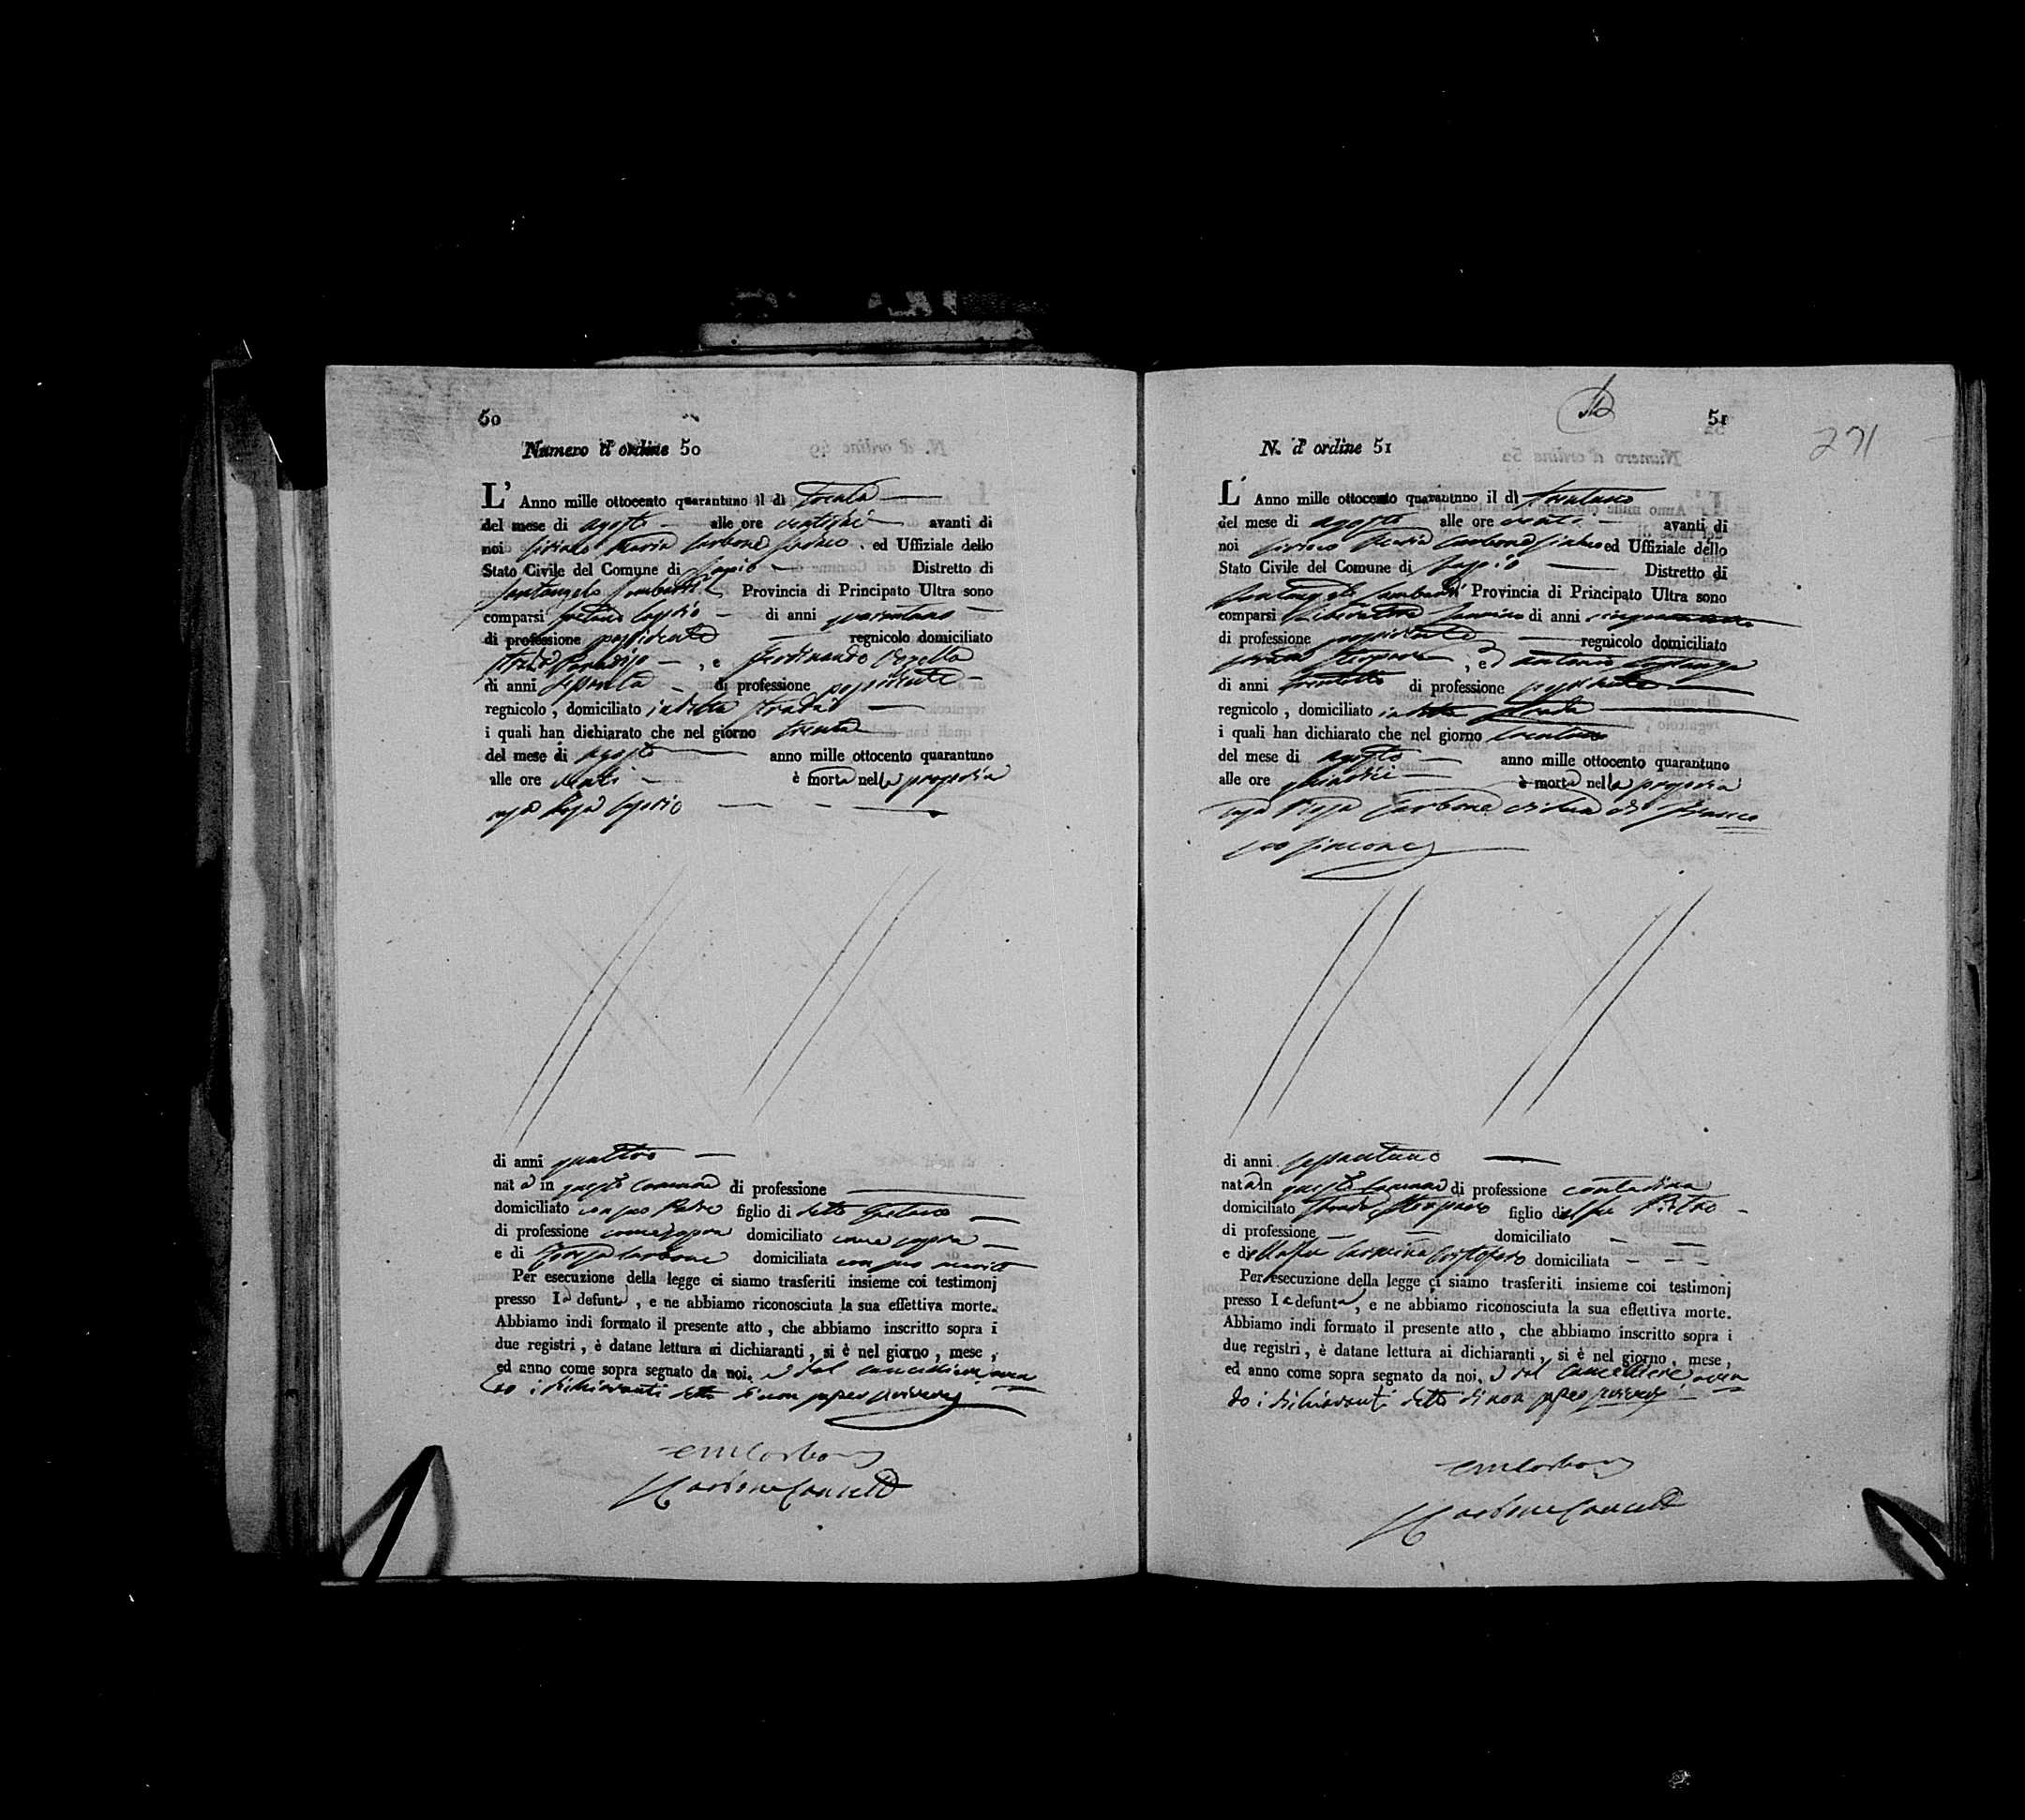 50
Numero d'ordine 50
L' Anno mille ottocento quarantuno il dì trenta
del mese di agosto alle ore ventidue avanti di
noi Ciriaco Maria Carbone Sindaco ed Uffiziale dello
Stato Civile del Comune di Lapio Distretto di
Santangelo Lombardi Provincia di Principato Ultra sono
comparsi Gaetano di anni quarantuno
di professione possidente regnicolo domiciliato
strada Paradiso , e Ferdinando
di anni sessanta di professione possidente
regnicolo , domiciliato in detta strada
i quali han dichiarato che nel giorno trenta
del mese di agosto anno mille ottocento quarantuno
alle ore venti è morta nella propria
casa Rosa
di anni quattro
nata in questo Comune di professione
domiciliato con suo Padre figlio di detto Gaetano
di professione come sopra domiciliato come sopra
e di Teresa Carbone domiciliata con suo marito
Per esecuzione della legge ci siamo trasferiti insieme coi testimonj
presso la defunta , e ne abbiamo riconosciuta la sua effettiva morte.
Abbiamo indi formato il presente atto , che abbiamo inscritto sopra i
due registri , è datane lettura ai dichiaranti , si è nel giorno , mese ,
ed anno come sopra segnato da noi, e dal cancelliere aven
do i dichiaranti detto di non saper scrivere
CMCarbone
Carbone Cancell
51
271
N. d' ordine 51
L' Anno mille ottocento quarantuno il dì trentuno
del mese di agosto alle ore venti avanti di
noi Ciriaco Maria Carbone Sindaco ed Uffiziale dello
Stato Civile del Comune di Lapio Distretto di
Santangelo Lombardi Provincia di Principato Ultra sono
comparsi Liberatore di anni
di professione possidente regnicolo domiciliato
strada , e Antonio
di anni di professione possidente
regnicolo , domiciliato in detta strada
i quali han dichiarato che nel giorno trentuno
del mese di agosto anno mille ottocento quarantuno
alle ore quindici è morta nella propria
casa Carbone vedova di France
sco
di anni sessantuno
nata in questo Comune di professione contadina
domiciliato strada figlio del fu Pietro
di professione domiciliato
e della fu domiciliata
Per esecuzione della legge ci siamo trasferiti insieme coi testimonj
presso la defunta , e ne abbiamo riconosciuta la sua effettiva morte.
Abbiamo indi formato il presente atto , che abbiamo inscritto sopra i
due registri , è datane lettura ai dichiaranti , si è nel giorno , mese ,
ed anno come sopra segnato da noi, e dal Cancelliere aven
do i dichiaranti detto di non saper scrivere
CMCarbone
Carbone Cancell